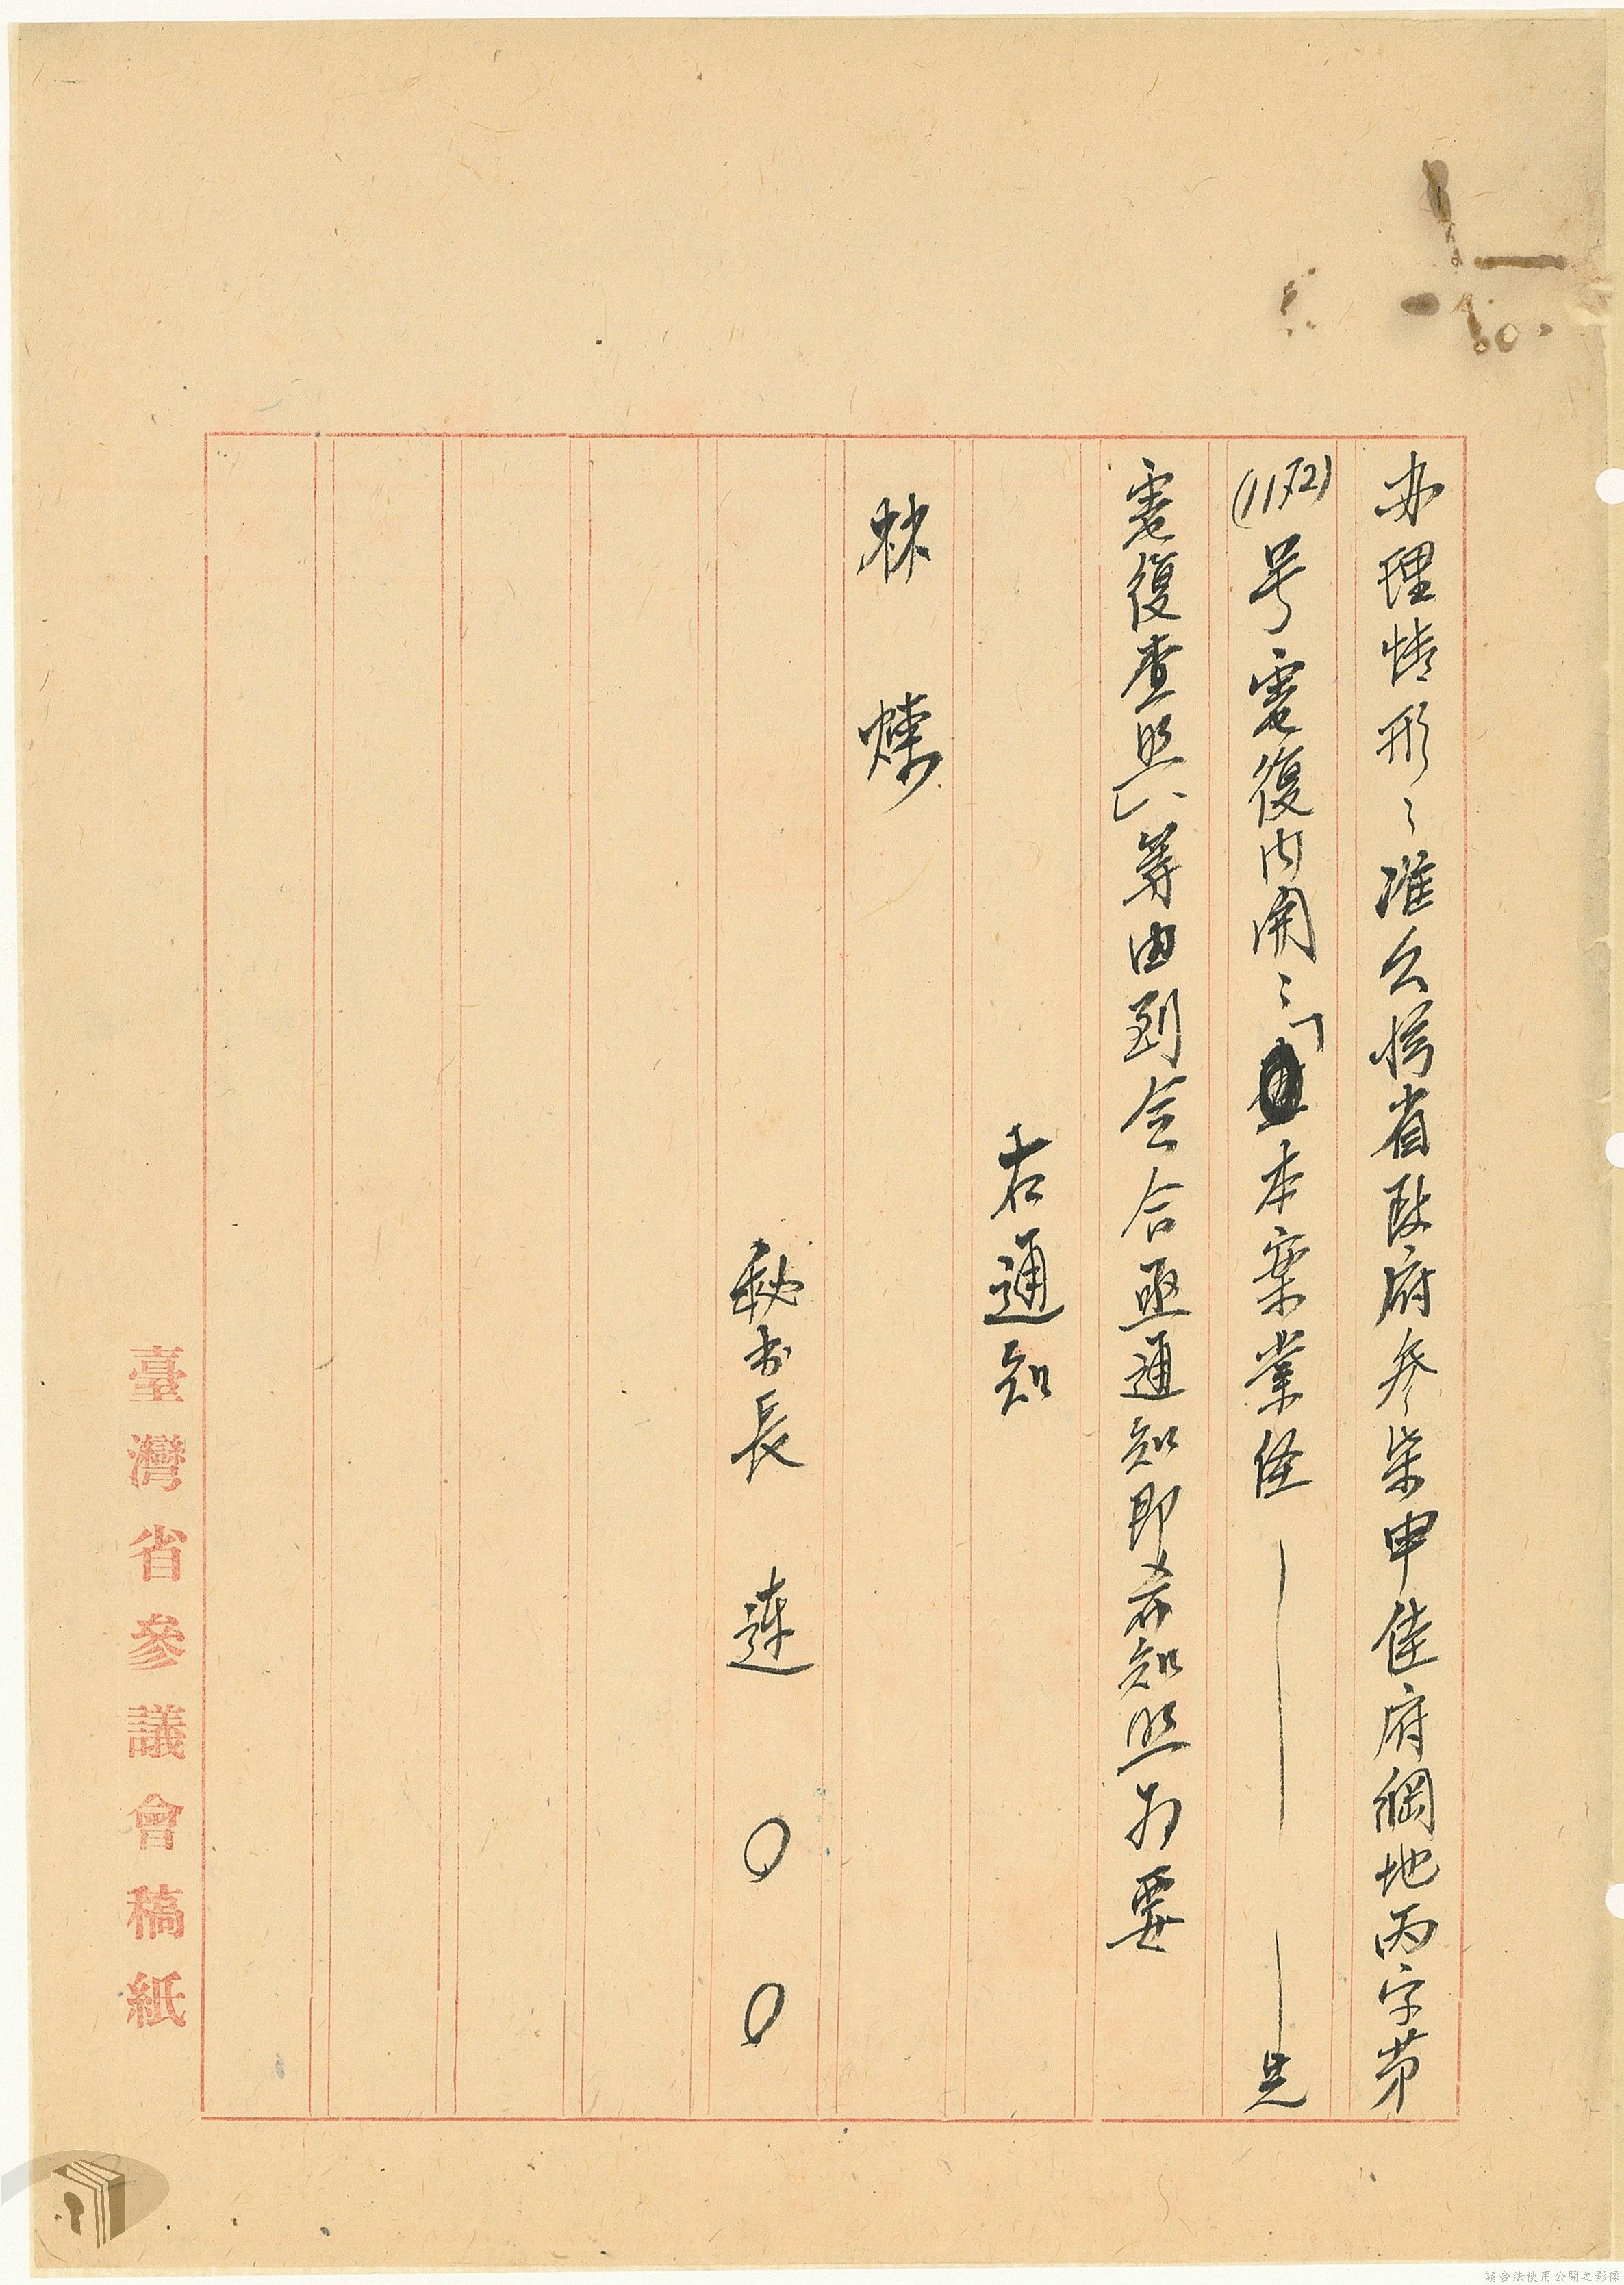 办理情形：准台灣省政府叁柒申佳府綱地丙字第
(1172)号電復内開：「本案業經——先
電復查照」等由到会合亟通知即希知照为要
右通知
林燦
秘书長 連〇〇
臺灣省參議會稿紙
請合法使用公開之影像